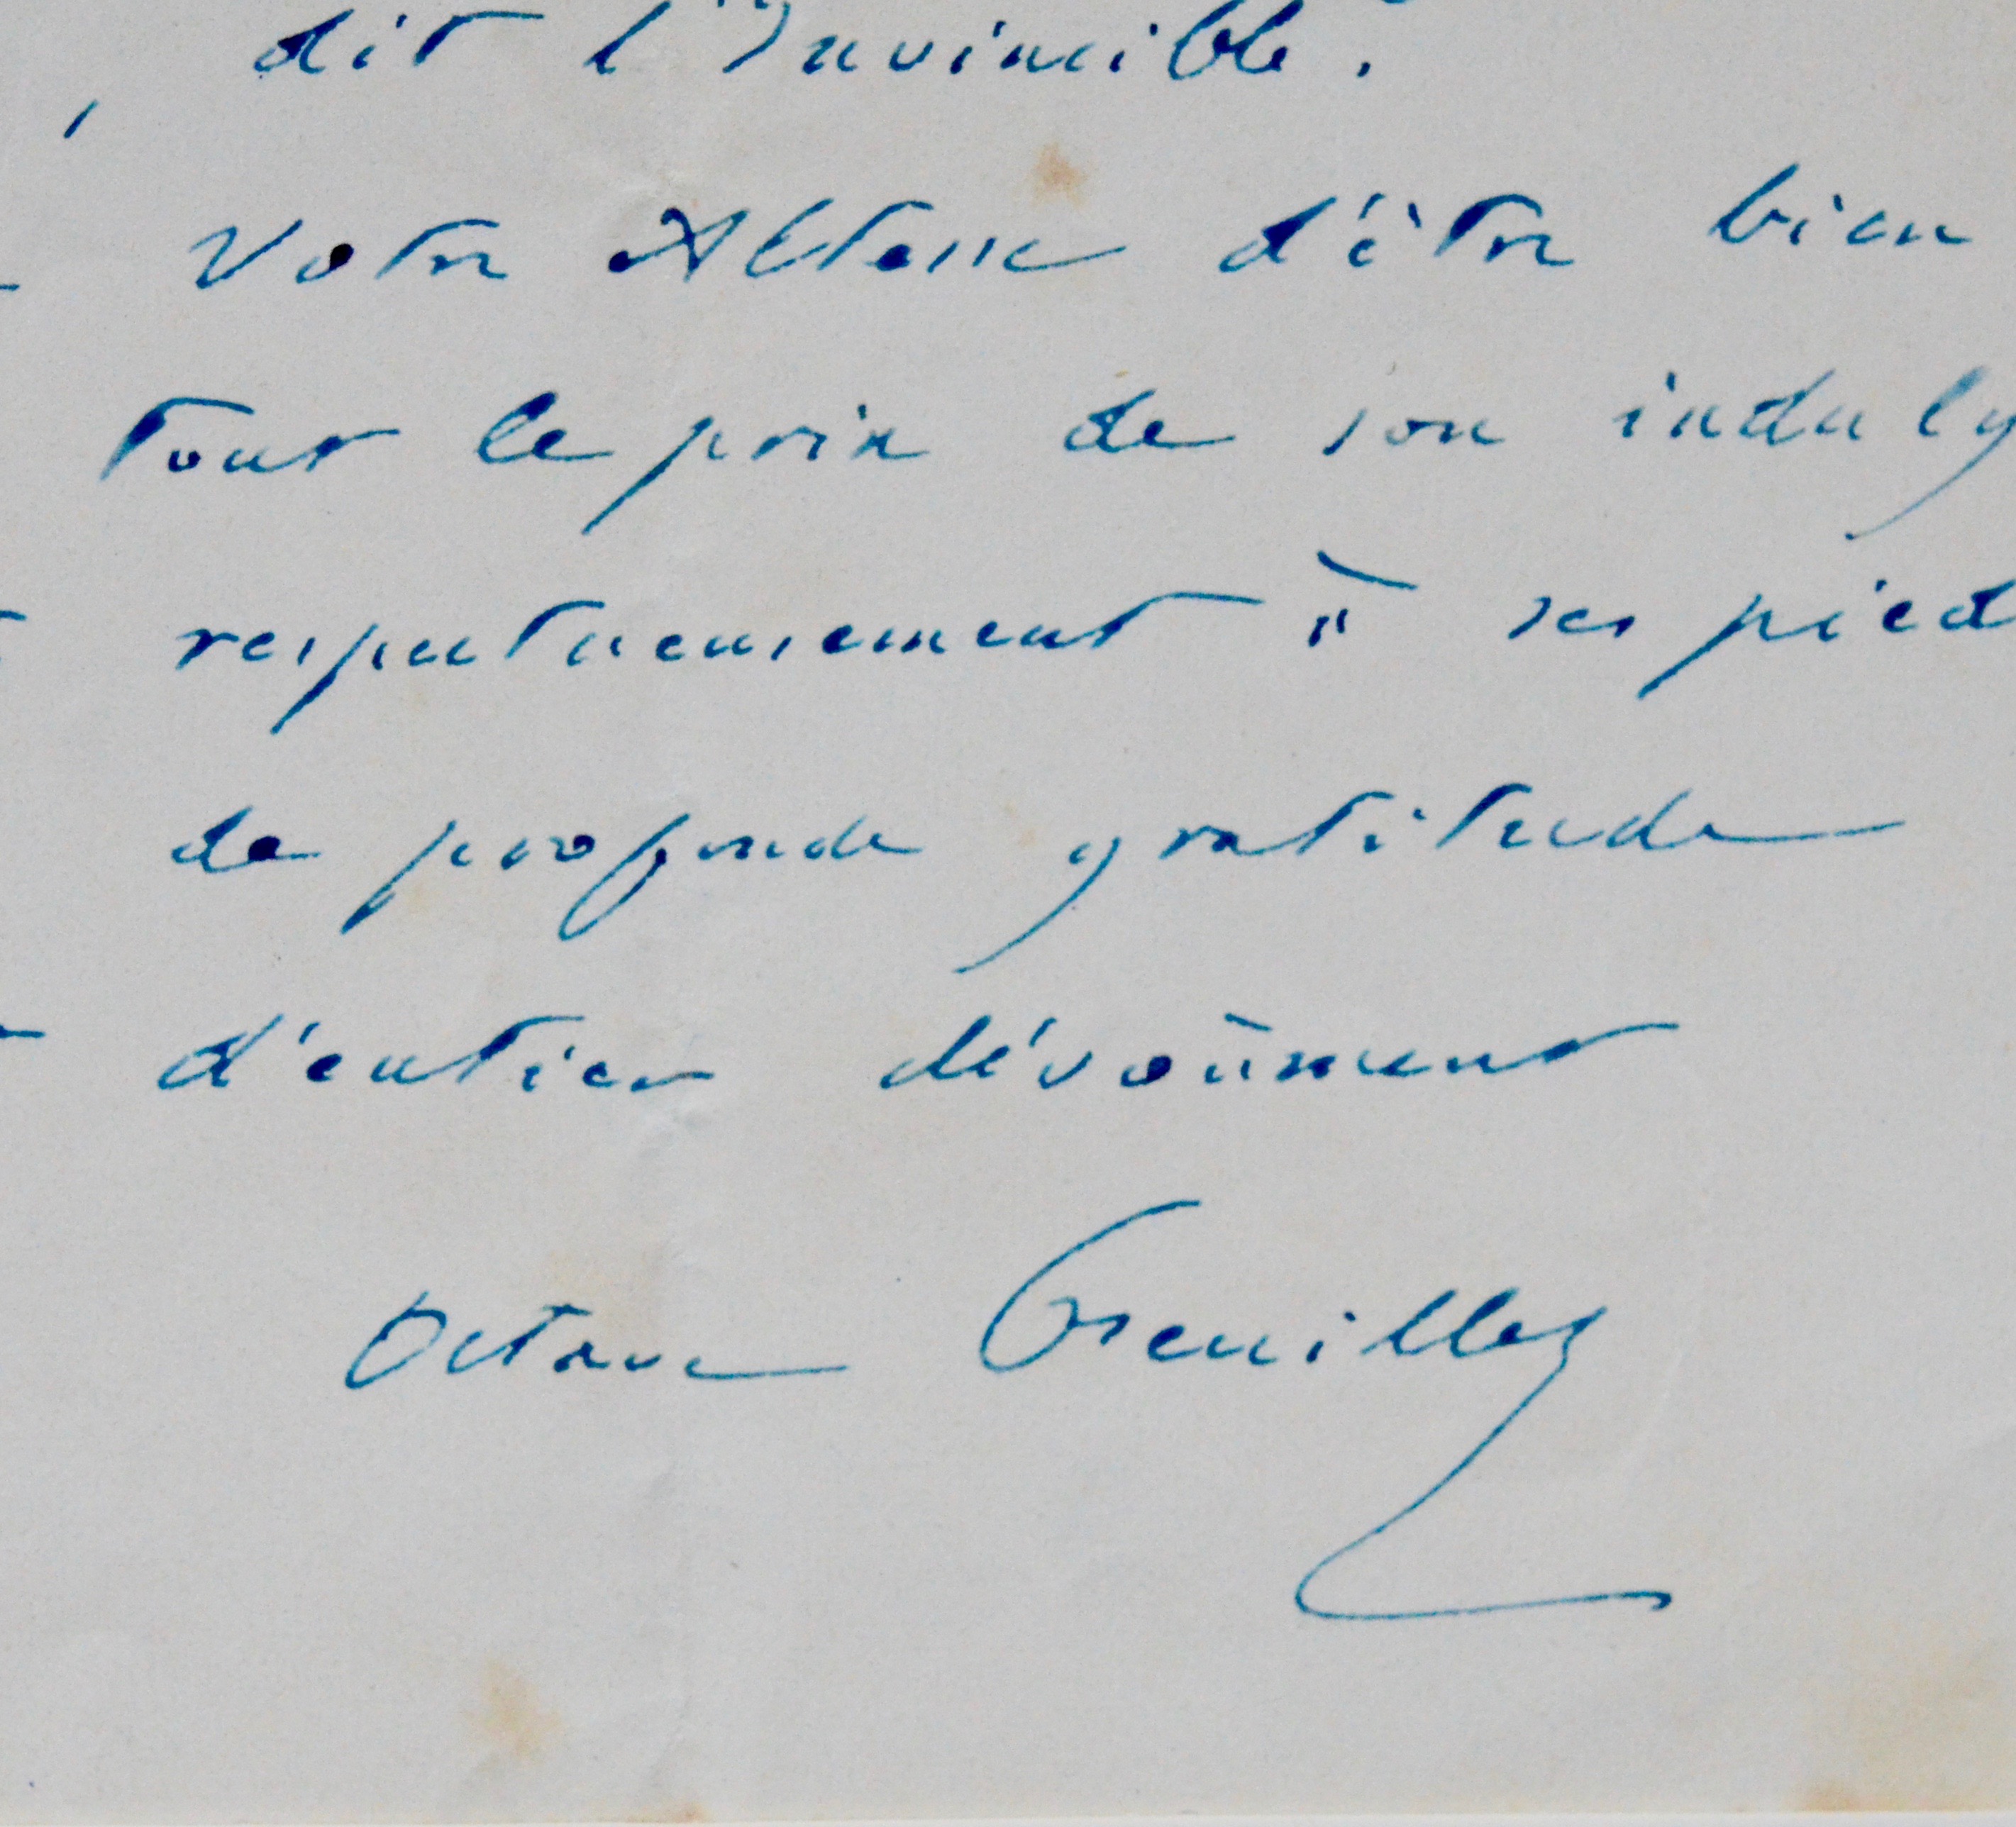 dit l'Invincible.
Votre Altesse d'être bien
tout le prix de son indulg
respectueusement à ses pied
de profonde gratitude
d'entier dévoûment
Octave Feuillet